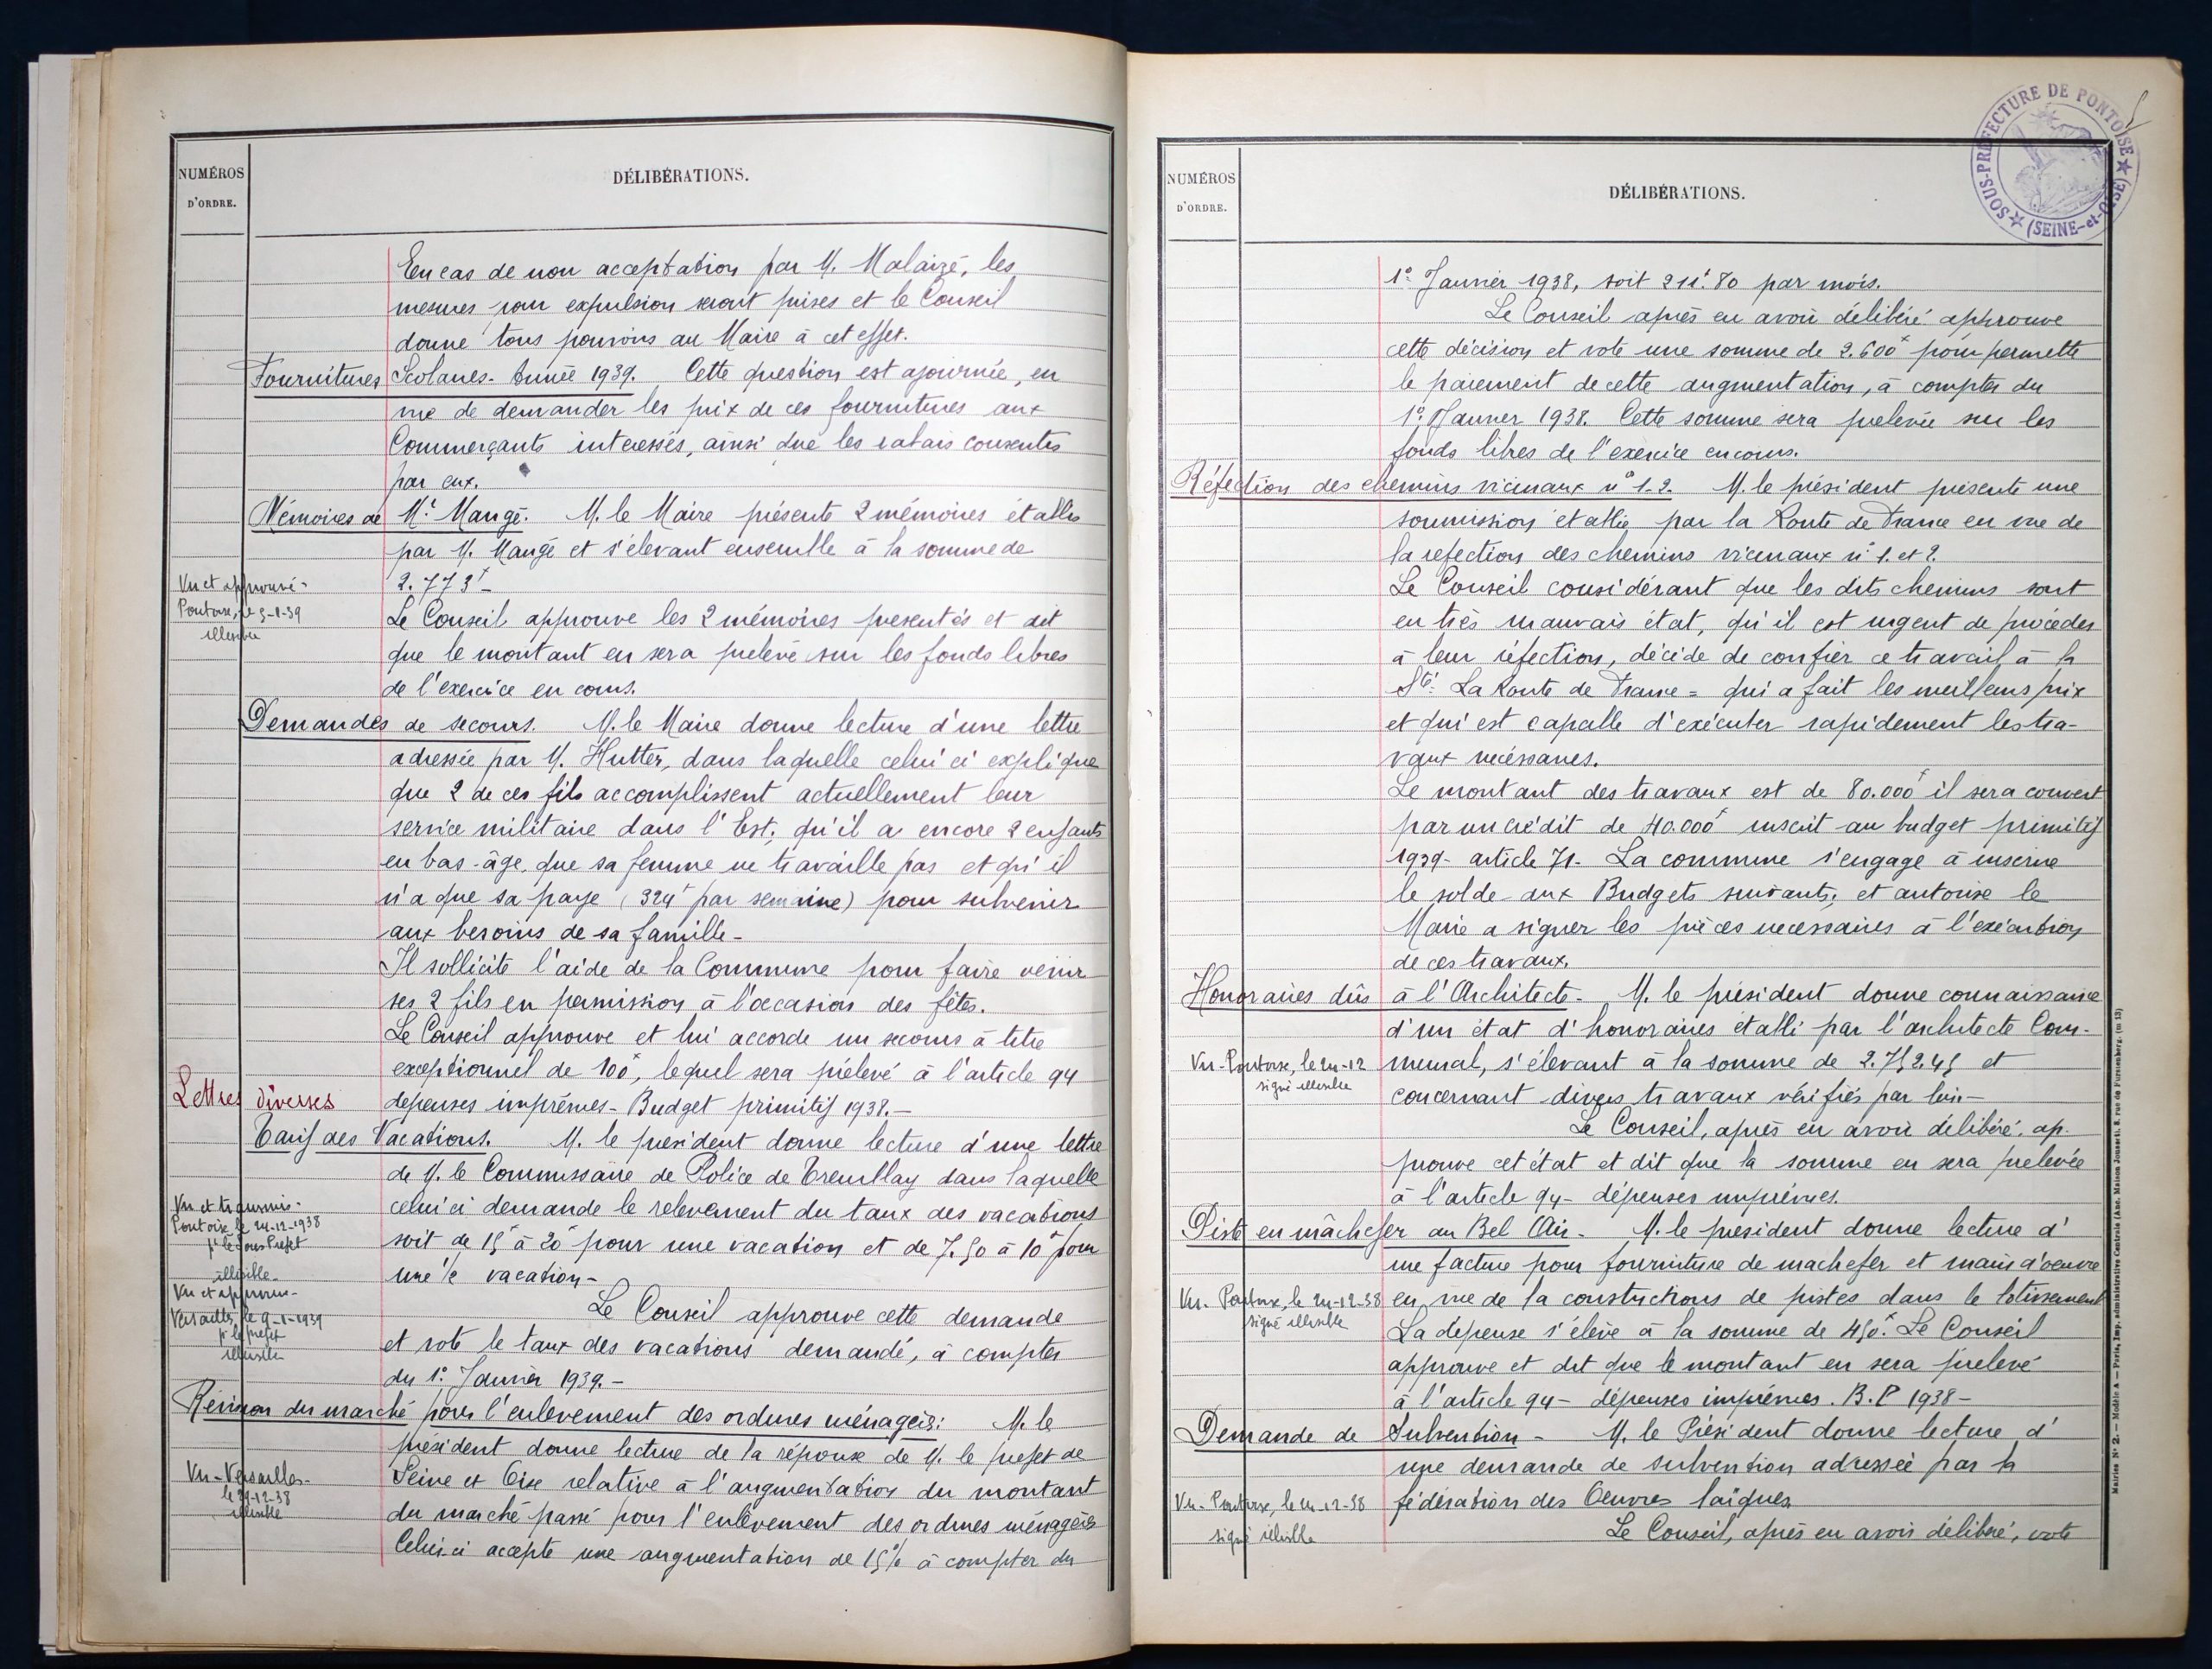 NUMÉROS
D'ORDRE.
DÉLIBÉRATIONS.
En cas de non acceptation par M. Malaizé, les
mesures pour expulsion seront prises et le Conseil
donne tous pouvoirs au Maire à cet effet.
Fournitures Scolaires - Année 1939. Cette question est ajournée, en
vue de demander les prix de ces fournitures aux
Commerçants intéressés, ainsi que les rabais consentis
par eux.
Mémoires de Mr Mangé. M. le Maire présente 2 mémoires établis
par M. Mangé et s'élevant ensemble à la somme de
2.773f -
Vu et approuvé -
Pontoise, le 5-1-39
illisible
Le Conseil approuve les 2 mémoires presentés et dit
que le montant en sera prelevé sur les fonds libres
de l'exercice en cours.
Demandes de secours. M. le Maire donne lecture d'une lettre
adressée par M. Hutter, dans laquelle celui ci explique
que 2 de ces fils accomplissent actuellement leur
service militaire dans l'Est, qu'il a encore 2 enfants
en bas-âge, que sa femme ne travaille pas et qu'il
n'a que sa paye (324f par semaine) pour subvenir
aux besoins de sa famille -
Il sollicite l'aide de la Commune pour faire venir
ses 2 fils en permission à l'occasion des fêtes.
Le Conseil approuve et lui accorde un secours à titre
exceptionnel de 100f, lequel sera prélevé à l'article 94
Lettres diverses
depenses imprévues - Budget primitif 1938. -
Tarif des Vacations. M. le president donne lecture d'une lettre
de M. le Commissaire de Police de Tremblay dans laquelle
celui ci demande le relevement du taux des vacations
soit de 15f à 20f pour une vacation et de 7.50 à 10f pour
une ½ vacation -
Vu et transmis -
Pontoise le 24-12-1938
pr le Sous Prefet
illisible -
Vu et approuvé -
Versailles, le 9-1-1939
pr le prefet
illisible
Le Conseil approuve cette demande
et vote le taux des vacations demandé, à compter
du 1er Janvier 1939. -
Révision du marché pour l'enlevement des ordures ménagères: M. le
président donne lecture de la réponse de M. le prefet de
Seine et Oise relative à l'augmentation du montant
du marché passé pour l'enlèvement des ordures ménagères
Celui-ci accepte une augmentation de 15% à compter du
Vu - Versailles -
le 29-12-38
illisible
SOUS-PRÉFECTURE DE PONTOISE
(SEINE-et-OISE)
NUMÉROS
D'ORDRE.
DÉLIBÉRATIONS.
1er Janvier 1938, soit 211f.80 par mois.
Le Conseil après en avoir délibéré approuve
cette décision et vote une somme de 2.600f pour permette
le paiement de cette augmentation, à compter du
1er Janvier 1938. Cette somme sera prelevée sur les
fonds libres de l'exercice en cours.
Réfection des chemins vicinaux n° 1-2. M. le président présente une
soumission etablie par la Route de France en vue de
la refection des chemins vicinaux n° 1. et 2.
Le Conseil considérant que les dits chemins sont
en très mauvais état, qu'il est urgent de procéder
à leur réfection, décide de confier ce travail à la
Sté: La Route de France = qui a fait les meilleurs prix
et qui est capable d'exécuter rapidement les tra-
vaux nécessaires.
Le montant des travaux est de 80.000f il sera couvert
par un crédit de 40.000f inscrit au budget primitif
1939 - article 71 - La commune s'engage à inscrire
le solde aux Budgets suivants, et autorise le
Maire a signer les pièces necessaires à l'exécution
de ces travaux.
Honoraires dûs à l'Architecte - M. le président donne connaissance
d'un état d'honoraires établi par l'architecte Com-
munal, s'élevant à la somme de 2.752.45 et
concernant divers travaux vérifiés par lui -
Vu - Pontoise, le 24-12
signé illisible
Le Conseil, après en avoir délibéré, ap-
prouve cet état et dit que la somme en sera prelevée
à l'article 94 - dépenses imprévues.
Piste en mâchefer au Bel Air - M. le president donne lecture d'
une facture pour fourniture de machefer et main d'oeuvre
en vue de la constructions de pistes dans le lotissement
Vu - Pontoise, le 24-12-38
signé illisible
La dépense s'élève à la somme de 450f. Le Conseil
approuve et dit que le montant en sera prelevé
à l'article 94 - dépenses imprévues. B.P 1938 -
Demande de Subvention - M. le Président donne lecture d'
une demande de subvention adressée par la
fédération des Oeuvres laïques
Vu - Pontoise, le 24-12-38
signé illisible
Le Conseil, après en avoir délibéré, vote